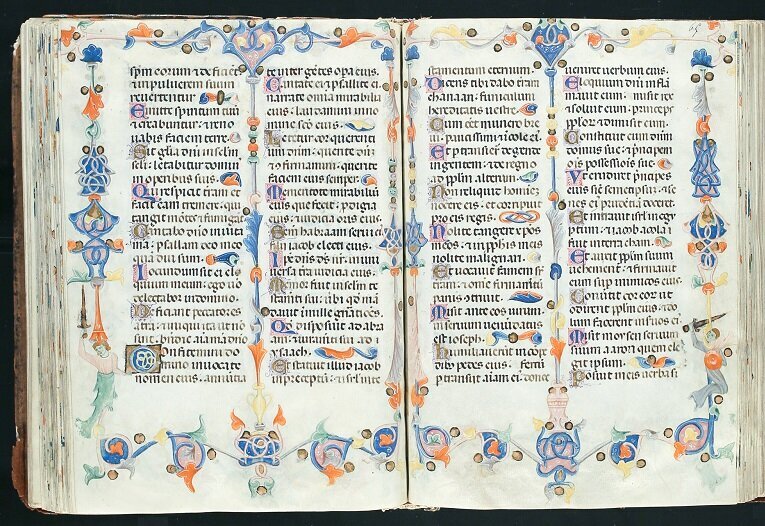 spm eorum ⁊ deficiēt
in pulverem suum
revertentur
Emitte spiritum tuū
⁊ creabuntur: ⁊ reno
vabis faciem terre
Sit glia dñi in selm
seli: letabitur domin
in operibus suis
Qui respicit terram et
facit eam tremere: qui
tangit mōtes ⁊ fumigāt
Cantabo dño in vita
mea: psallam deo meo
qua diu sum
Iocundum sit ei elo
quium meum: ego vō
delectabor in domino
Deficiant peccatores
a tra: ⁊ iniqui ita ut nō
sint: bñdic aīa mea dño
Confitemini do
mino ⁊ invocate
nomen eius: annūtia
te inter gētes opa eius
Cantate ei ⁊ psallite ei:
narrate omīa mirabilia
eius: laudamini in no
mine sc̄o eius
Letetur cor querenti
um dñm: querite dñm
⁊ ɔfirmamini: querite
faciem eius semper
Mementote mirabiliū
eius que fecit: pdigia
eius: ⁊ iudicia oris eius
Semen habraam servi
eius: filii iacob electi eius
Ipse dñs ds nr: in uni
versa tra iudicia eius
Memor fuit in selm te
stamti sui: vbi qd mā
davit in mille gñatiōes
Qd disposuit ad abra
am: ⁊ iuramti sui ad
ysaach
Et statuit illud iacob
in pceptū: ⁊ isrl in te
stamentum eternum
Dicens tibi dabo tram
chanaan: funiculum
hereditatis vestre
Cum eēt numero bre
vi: paucissimi ⁊ icole ei
Et ptransierūt de gente
in gentem: ⁊ de regno
ad pplm alterum
Non reliquit hominē
nocere eis: et corripuit
pro eis reges
Nolite tangere xpos
meos: ⁊ in pphis meis
nolite malignari
Et vocavit famem sr
tram: ⁊ omē firmamtū
panis ɔtrivit
Misit ante eos virum:
in servum venūdatus
est ioseph
Humiliaverūt in cōpe
dib pedes eius: ferrū
ptransiit aīam ei: donec
veniret verbum eius
Eloquium dñi īfla
mavit eum: misit rex
⁊ solvit eum: princeps
pplor ⁊ dimisit eum
Constituit eum dñm
domus sue: ⁊ pīncipem
oīs possessiōis sue
Vt erudiret pīncipes
eius sic semetipsū: ⁊ se
nes ei prudēciā doceret
Et intravit isrl in egy
ptum: ⁊ iacob acola
fuit in terra cham
Et auxit pplm suum
vehement: ⁊ firmavit
eum sup inimicos eius
Convtit cor eor ut
odirent pplm eius: ⁊ do
lum facerent in svos ei
Misit moysen servum
suum: aaron quem ele
git ipsum
Posuit in eis verba si